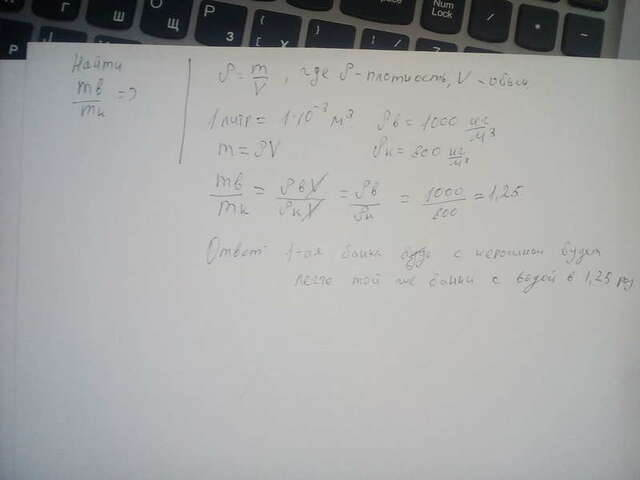 Г
Ш
Щ
З
Х
Num
Lock
/
*
-
Р
О
{
[
Найти
mв/mк = ?
ρ = m/V, где ρ - плотность, V - объём
1 литр = 1·10⁻³ м³ ρв = 1000 кг/м³
m = ρV ρк = 800 кг/м³
mв/mк = ρвV/ρкV = ρв/ρк = 1000/800 = 1,25
Ответ: 1-ая банка с керосином будет
легче той же банки с водой в 1,25 раз